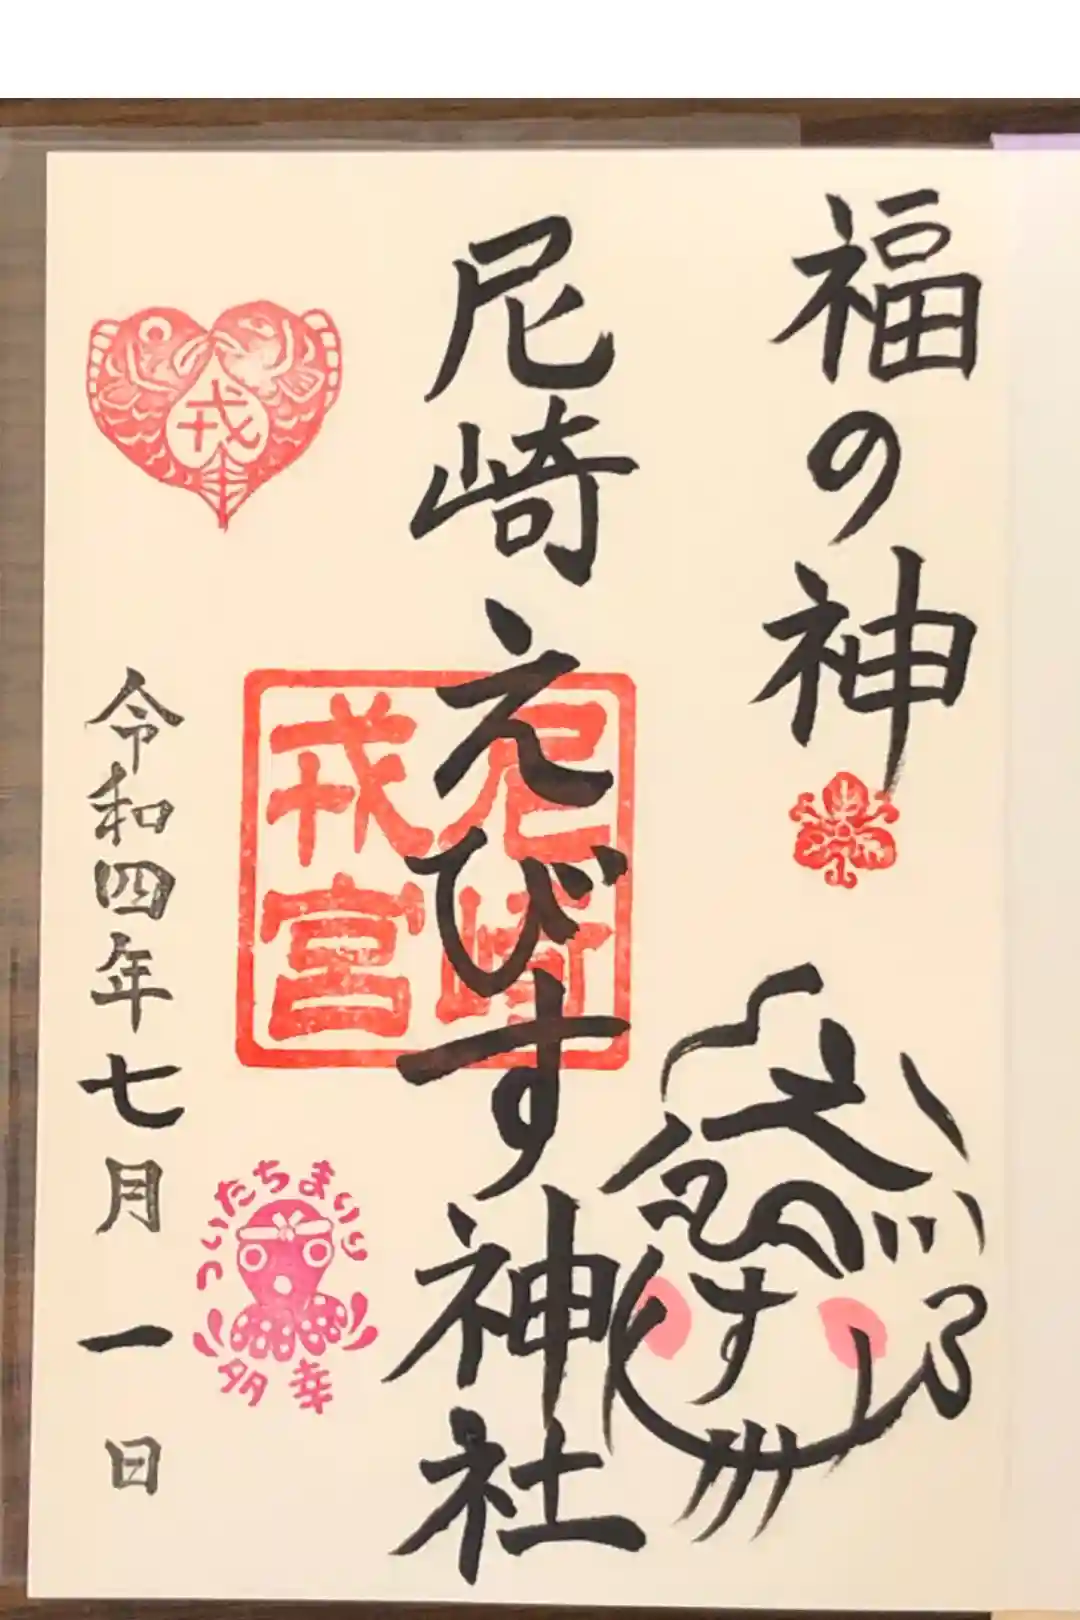 福の神
尼崎えびす神社
尼崎
戎宮
戎
令和四年七月一日
ついたちまいり
多幸